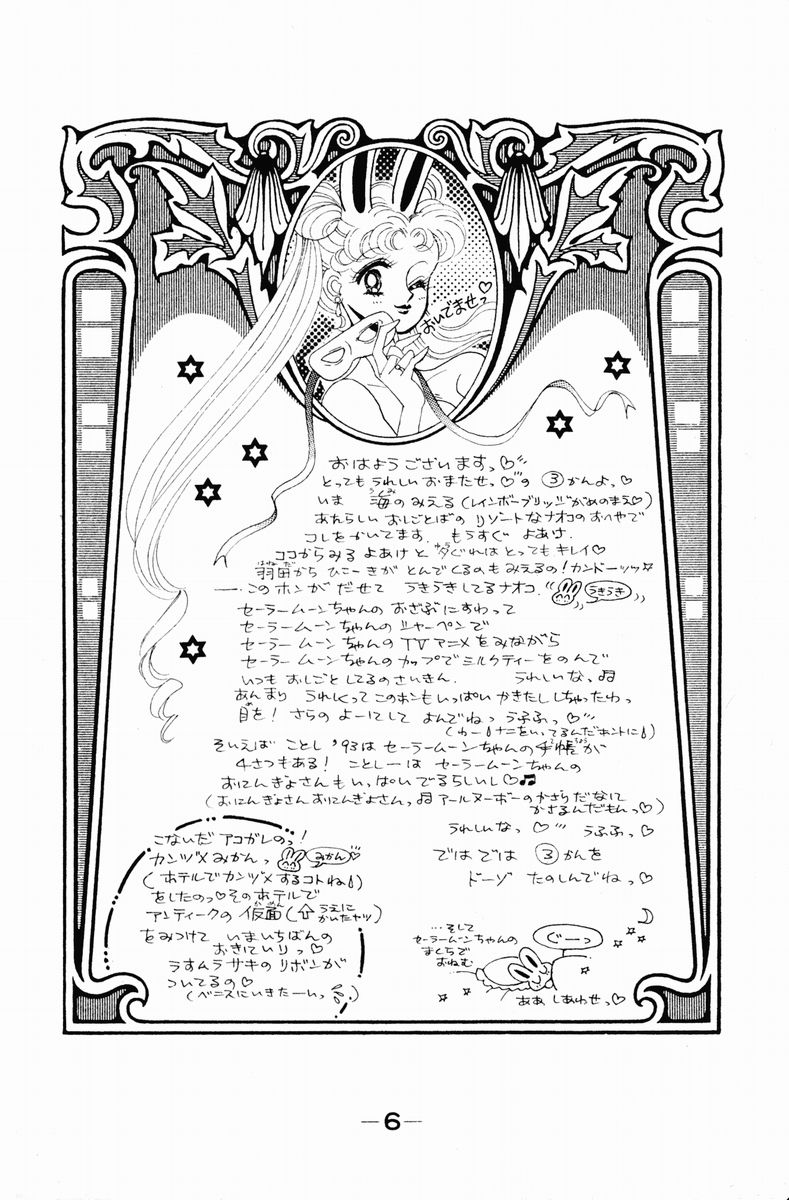 おいでませっ♡
おはようございますっ♡
とってもうれしいおまたせっ♡の③かんよっ♡
いま 海のみえる(レインボーブリッジがめのまえ♡)
あたらしい おしごとばの リゾートなナオコのおへやで
コレをかいてます。もうすぐ よあけ。
ココからみる よあけと 夕ぐれはとってもキレイ♡
羽田から ひこーきが とんでくるのもみえるの!カンドーッッ☆
──このホンが だせて うきうきしてるナオコ。
うきうき
セーラームーンちゃんの おざぶにすわって
セーラームーンちゃんの シャーペンで
セーラームーンちゃんの TVアニメをみながら
セーラームーンちゃんの カップでミルクティーをのんで
いつも おしごとしてるのさいきん。 うれしいな。♫
あんまり うれしくってこのホンもいっぱいかきたししちゃったわっ
目を! さらの よーにして よんでねっ うふふっ♡
そいえば ことし '93は セーラームーンちゃんの手帳が
4さつもある! ことしーは セーラームーンちゃんの
おにんぎょさんもいっぱいでるらしいし♡♫
(おにんぎょさんおにんぎょさんっ♫アールヌーボーのかざらだなに
かざるんだもんっ♡)
うれしいなっ♡ うふふっ♡
では では ③かんを
ドーゾ たのしんでねっ♡
こないだ アコガレのっ!
カンヅメみかんっ
みかん
(ホテルでカンヅメするコトね)
をしたのっ♡そのホテルで
アンティークの 仮面(⇧うえに
かいたヤツ)
をみつけて いまいちばんの
おきにいりっ♡
うすムラサキのリボンが
ついてるの♡
(ベニスにいきたーいっ)
…そして
セーラームーンちゃんの
まくらで
おねむ
ぐーっ
ああ しあわせっ♡
—6—